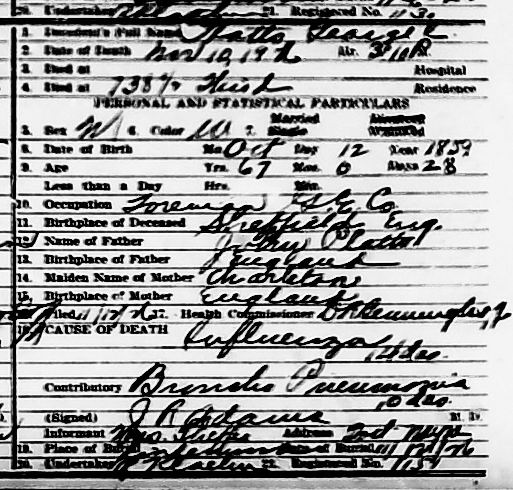 20. Undertaker 21. Registered No.
1. Decedent's Full Name Platts George E
2. Date of Death Nov 10, 19 Hr. 3:10 P.
3. Died at Hospital
4. Died at 738 1/2 Third Residence
PERSONAL AND STATISTICAL PARTICULARS
Married Divorced
5. Sex M 6. Color W 7. Single Widowed
8. Date of Birth Mo Oct Day 12 Year 1859
9. Age Yrs. 67 Mos. 0 Days 28
Less than a Day Hrs. Min.
10. Occupation Foreman G.E. Co.
11. Birthplace of Deceased Sheffield Eng.
12. Name of Father John Platts
13. Birthplace of Father England
14. Maiden Name of Mother Charleton
15. Birthplace of Mother England
Filed 11/12/26 17. Health Commissioner
18. CAUSE OF DEATH Influenza
14 das.
Contributory Broncho Pneumonia
10 das.
(Signed) J R Adams M. D.
Informant Mrs. Address
19. Place of Burial Date of Burial 11/12/26
20. Undertaker 22. Registered No.